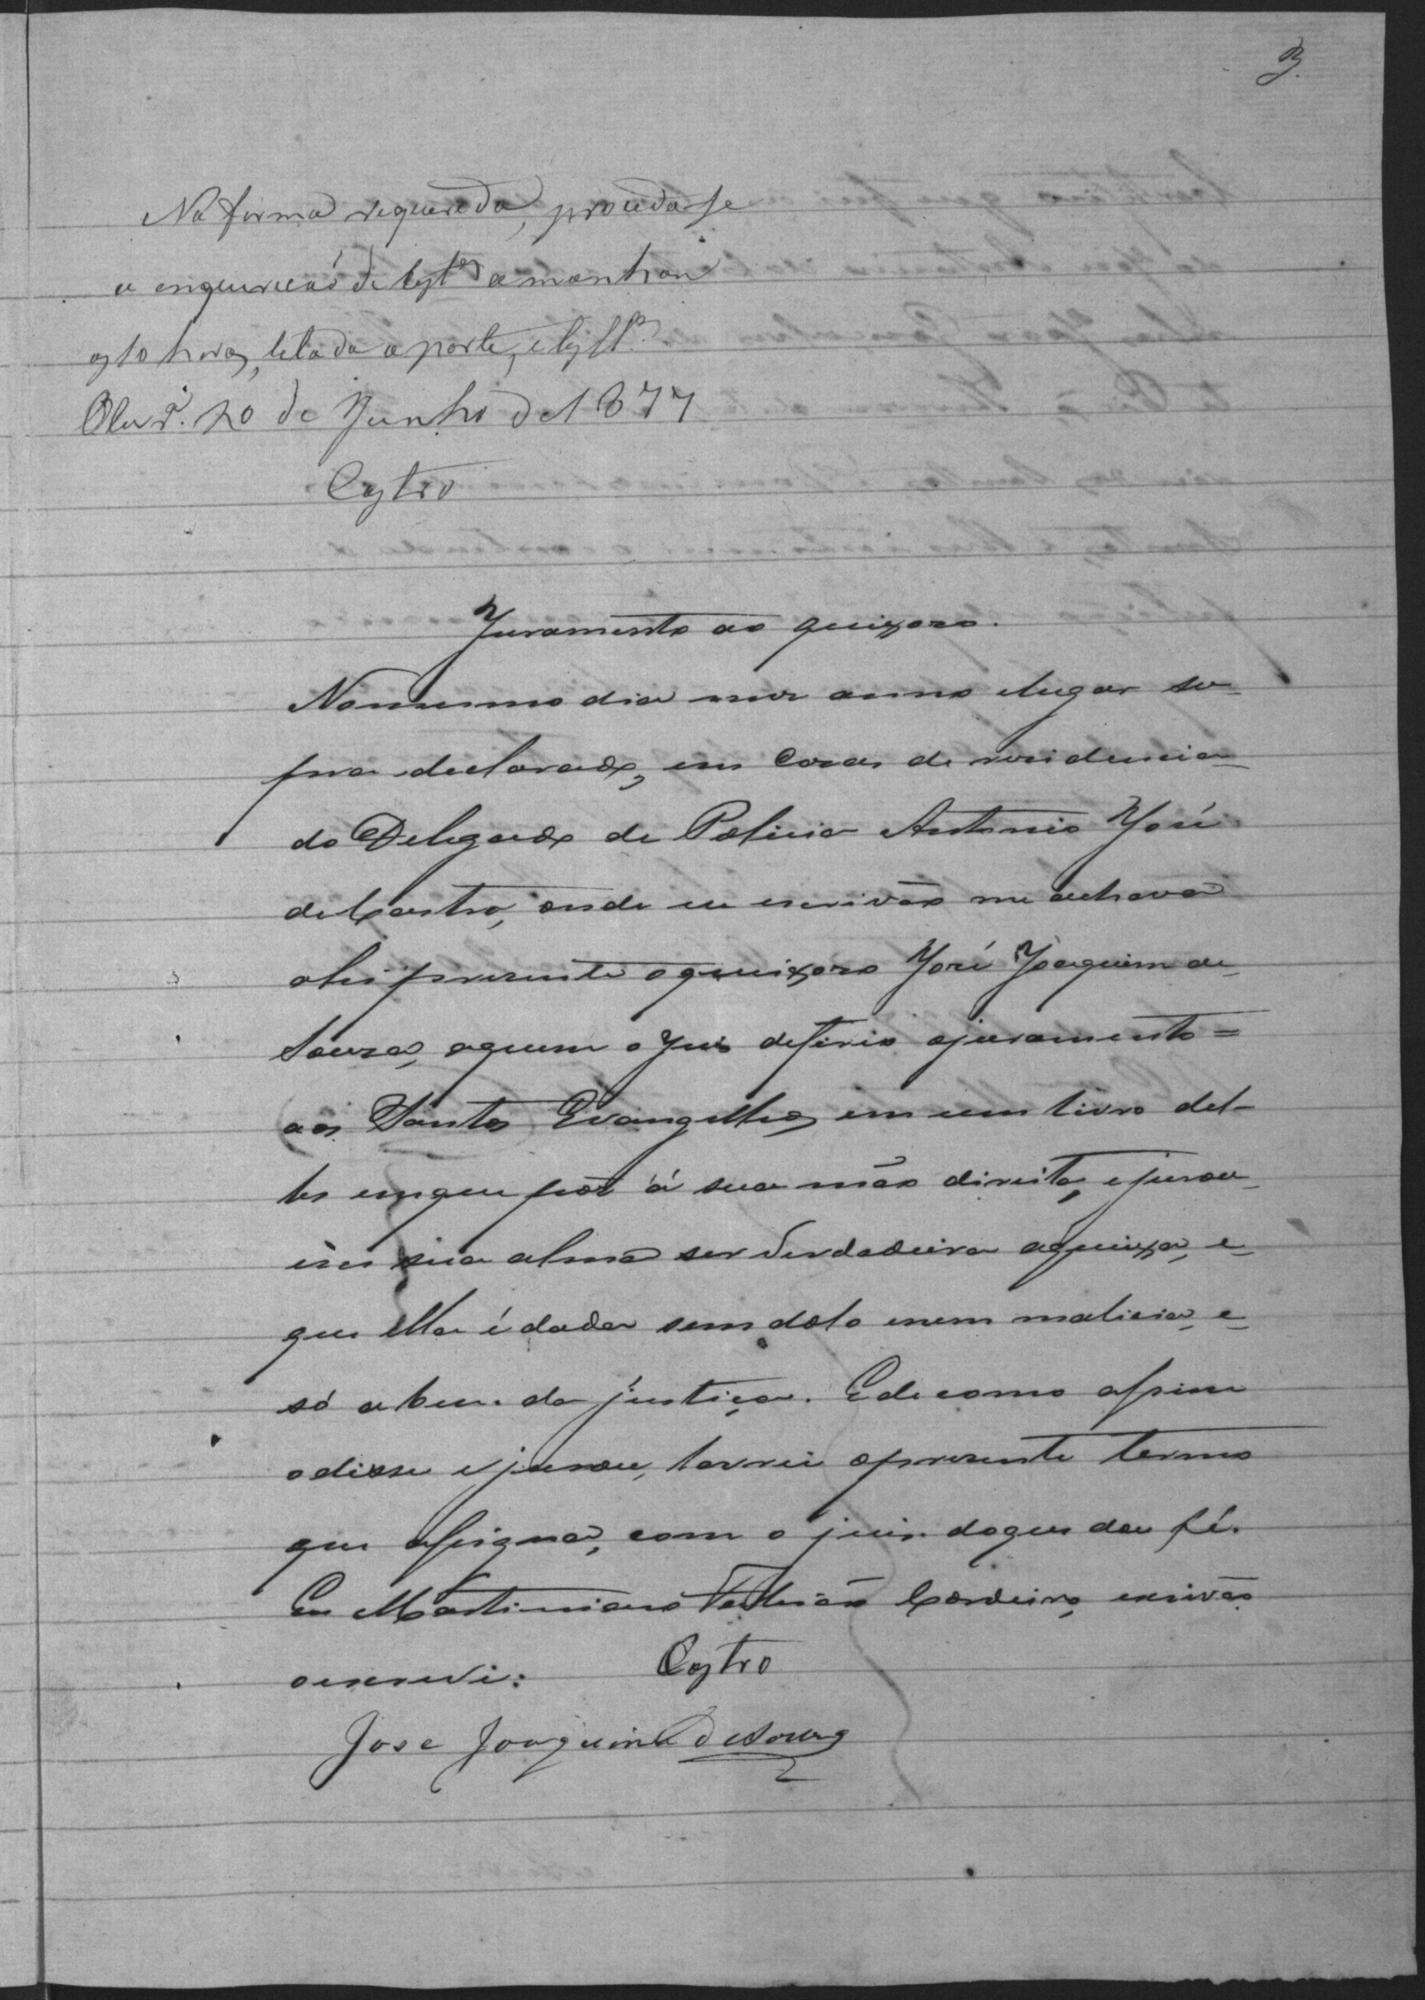 3.
Na forma requerida, proceda se
a enquirecaó de testas a manhan
as 10 horas, citada a parte, e testas.
20 de Junho de 1877
Castro
Juramento ao queixoso.
No mesmo dia mez anno e lugar su-
pra declarado, em casas de residencia
do Delegado de Policia Antonio José
de Castro, onde eu escrivão me achava
ahi presente o queixoso José Joaquim de
Souza, a quem o Juis deferio o juramento =
aos Santos Evangelhos em um livro del-
les em que pôs á sua mão direita, e jurou
em sua alma ser verdadeira a queixa, e
que ella é dada sem dolo nem malicia, e
só a bem da justiça. E de como assim
o disse e jurou, lavrei o presente termo
que assigna, com o juis do que dou fé.
Eu Martiniano Cordeiro, escrivão
o escrevi: Castro
Jose Joaquim de Souza